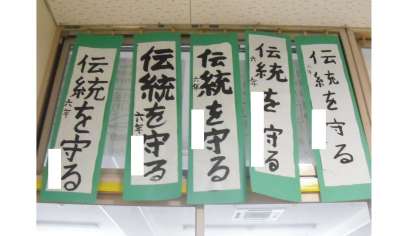 伝統を守る
六年
伝統を守る
六年
伝統を守る
六年
伝統を守る
六年
伝統を守る